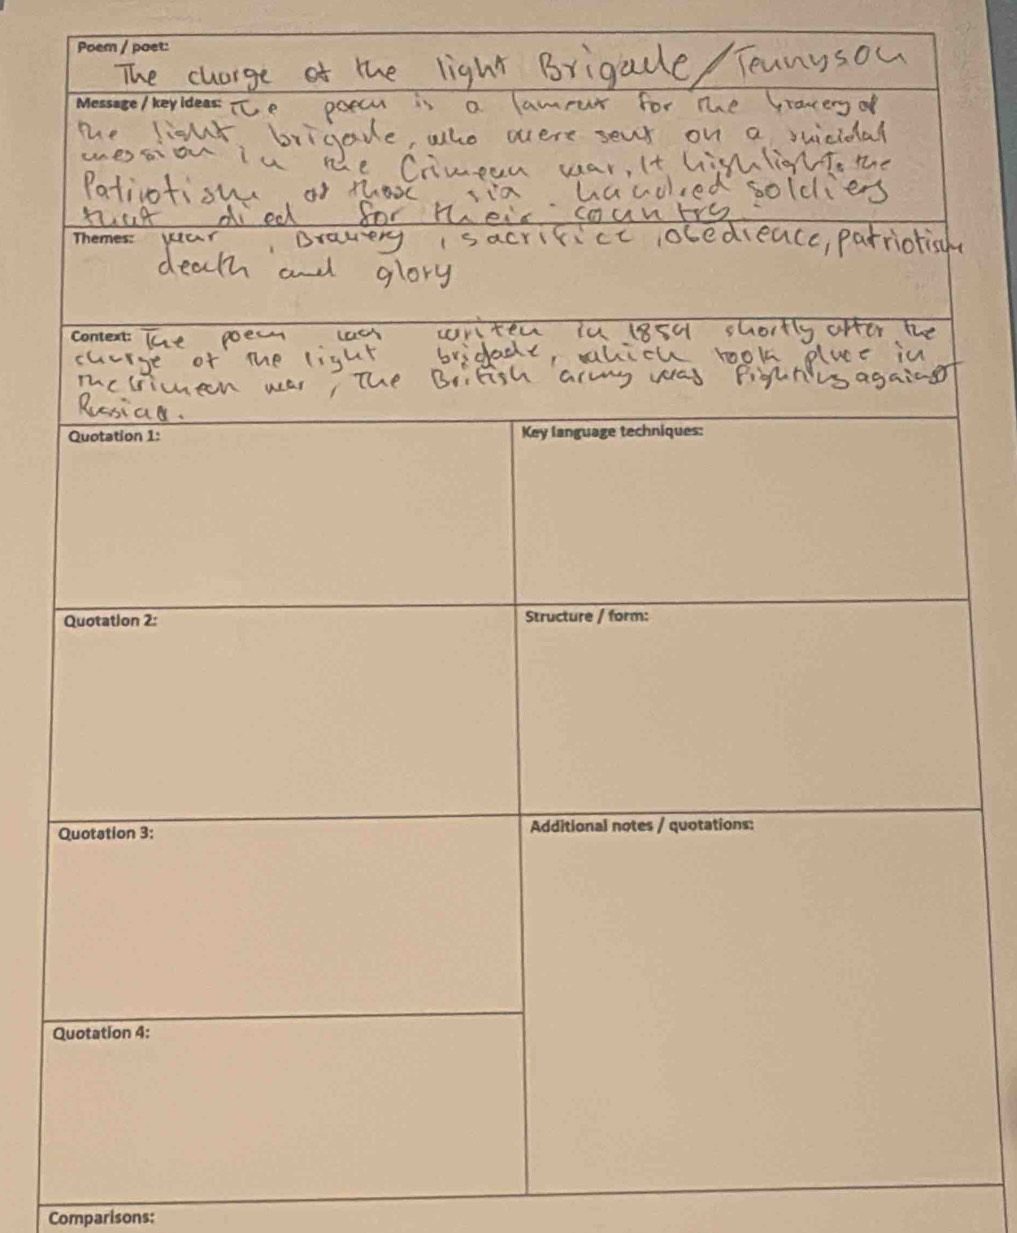 Poem / poet:
The charge of the light Brigade / Tennyson
Message / key ideas: The poem is a lament for the bravery of
the light brigade, who were sent on a suicidal
mession in the Crimean war, It highlights the
Patriotism of those six hundred soldiers
that died for their country.
Themes: war, Bravery, sacrifice, obedience, patriotism
death and glory
Context: The poem was writen in 1854 shortly after the
charge of the light brigade, which took place in
the crimean war, The British army was fighting against
Russian.
Quotation 1:
Key language techniques:
Quotation 2:
Structure / form:
Quotation 3:
Additional notes / quotations:
Quotation 4:
Comparisons: